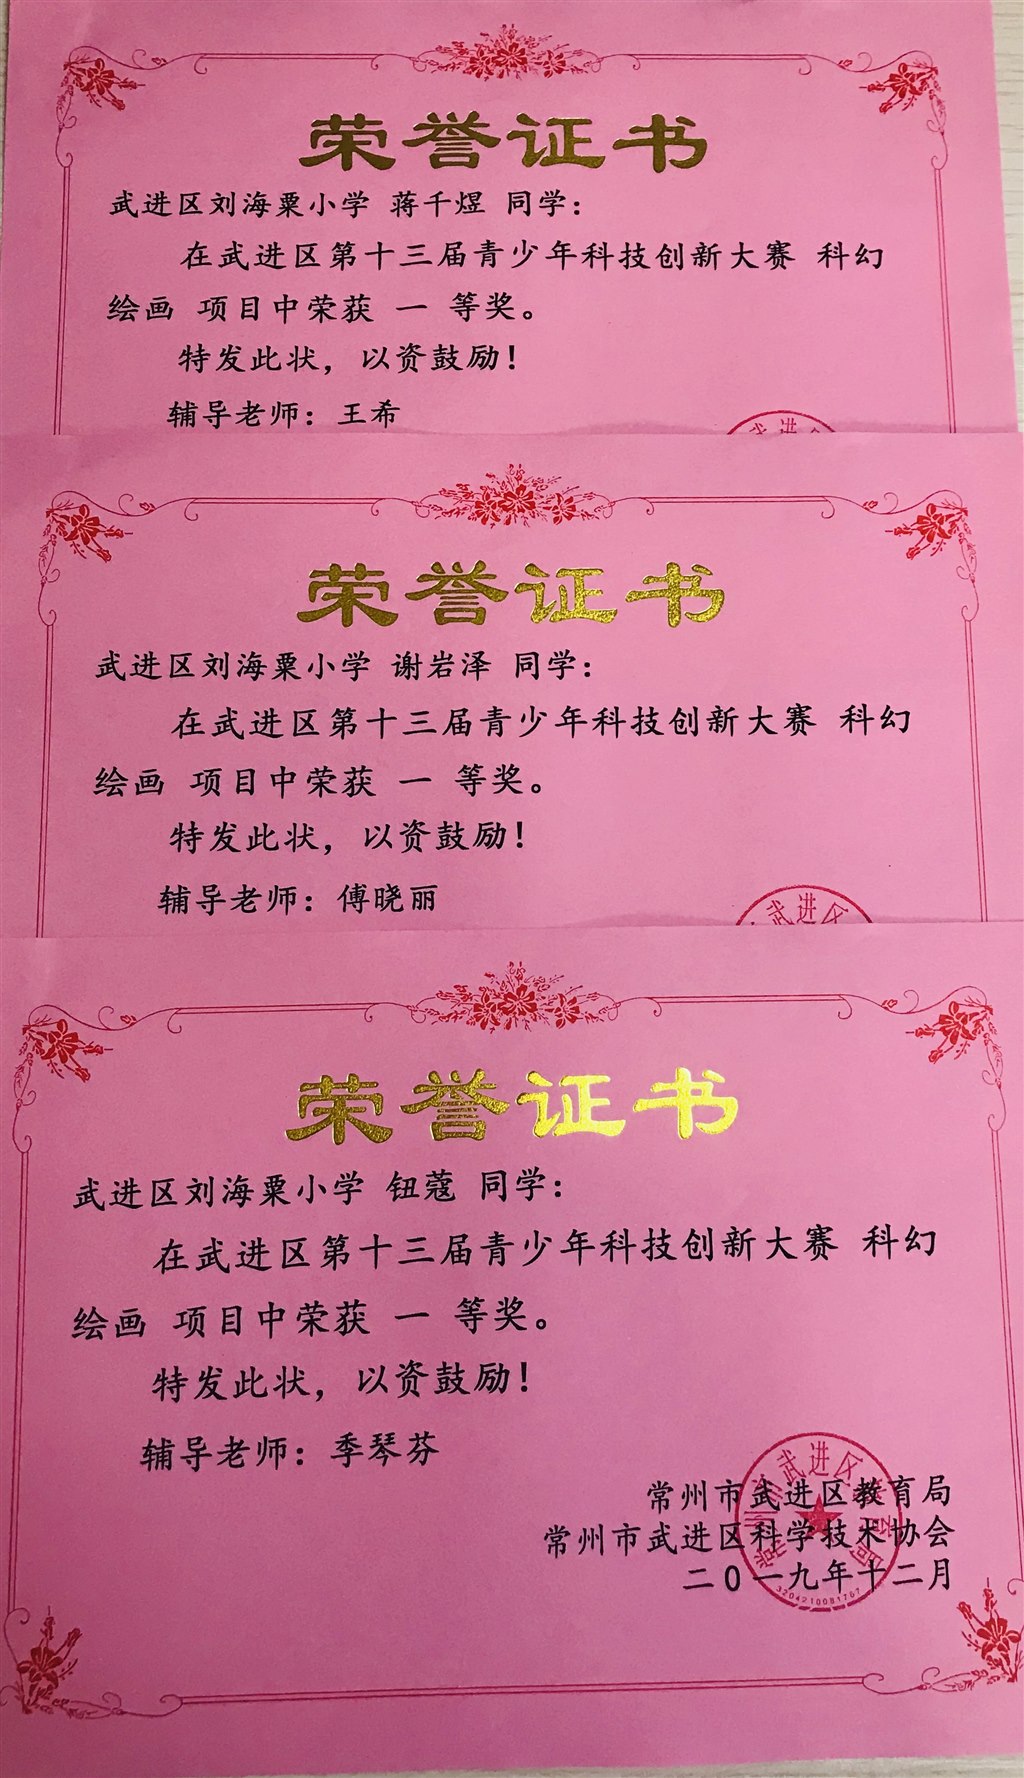 荣誉证书
武进区刘海粟小学 蒋千煜 同学：
在武进区第十三届青少年科技创新大赛 科幻
绘画 项目中荣获 一 等奖。
特发此状，以资鼓励！
辅导老师：王希
武进
荣誉证书
武进区刘海粟小学 谢岩泽 同学：
在武进区第十三届青少年科技创新大赛 科幻
绘画 项目中荣获 一 等奖。
特发此状，以资鼓励！
辅导老师：傅晓丽
武进区
荣誉证书
武进区刘海粟小学 钮蔻 同学：
在武进区第十三届青少年科技创新大赛 科幻
绘画 项目中荣获 一 等奖。
特发此状，以资鼓励！
辅导老师：季琴芬
常州市武进区教育局
常州市武进区科学技术协会
二0一九年十二月
常州市武进区教育局
3204210081767